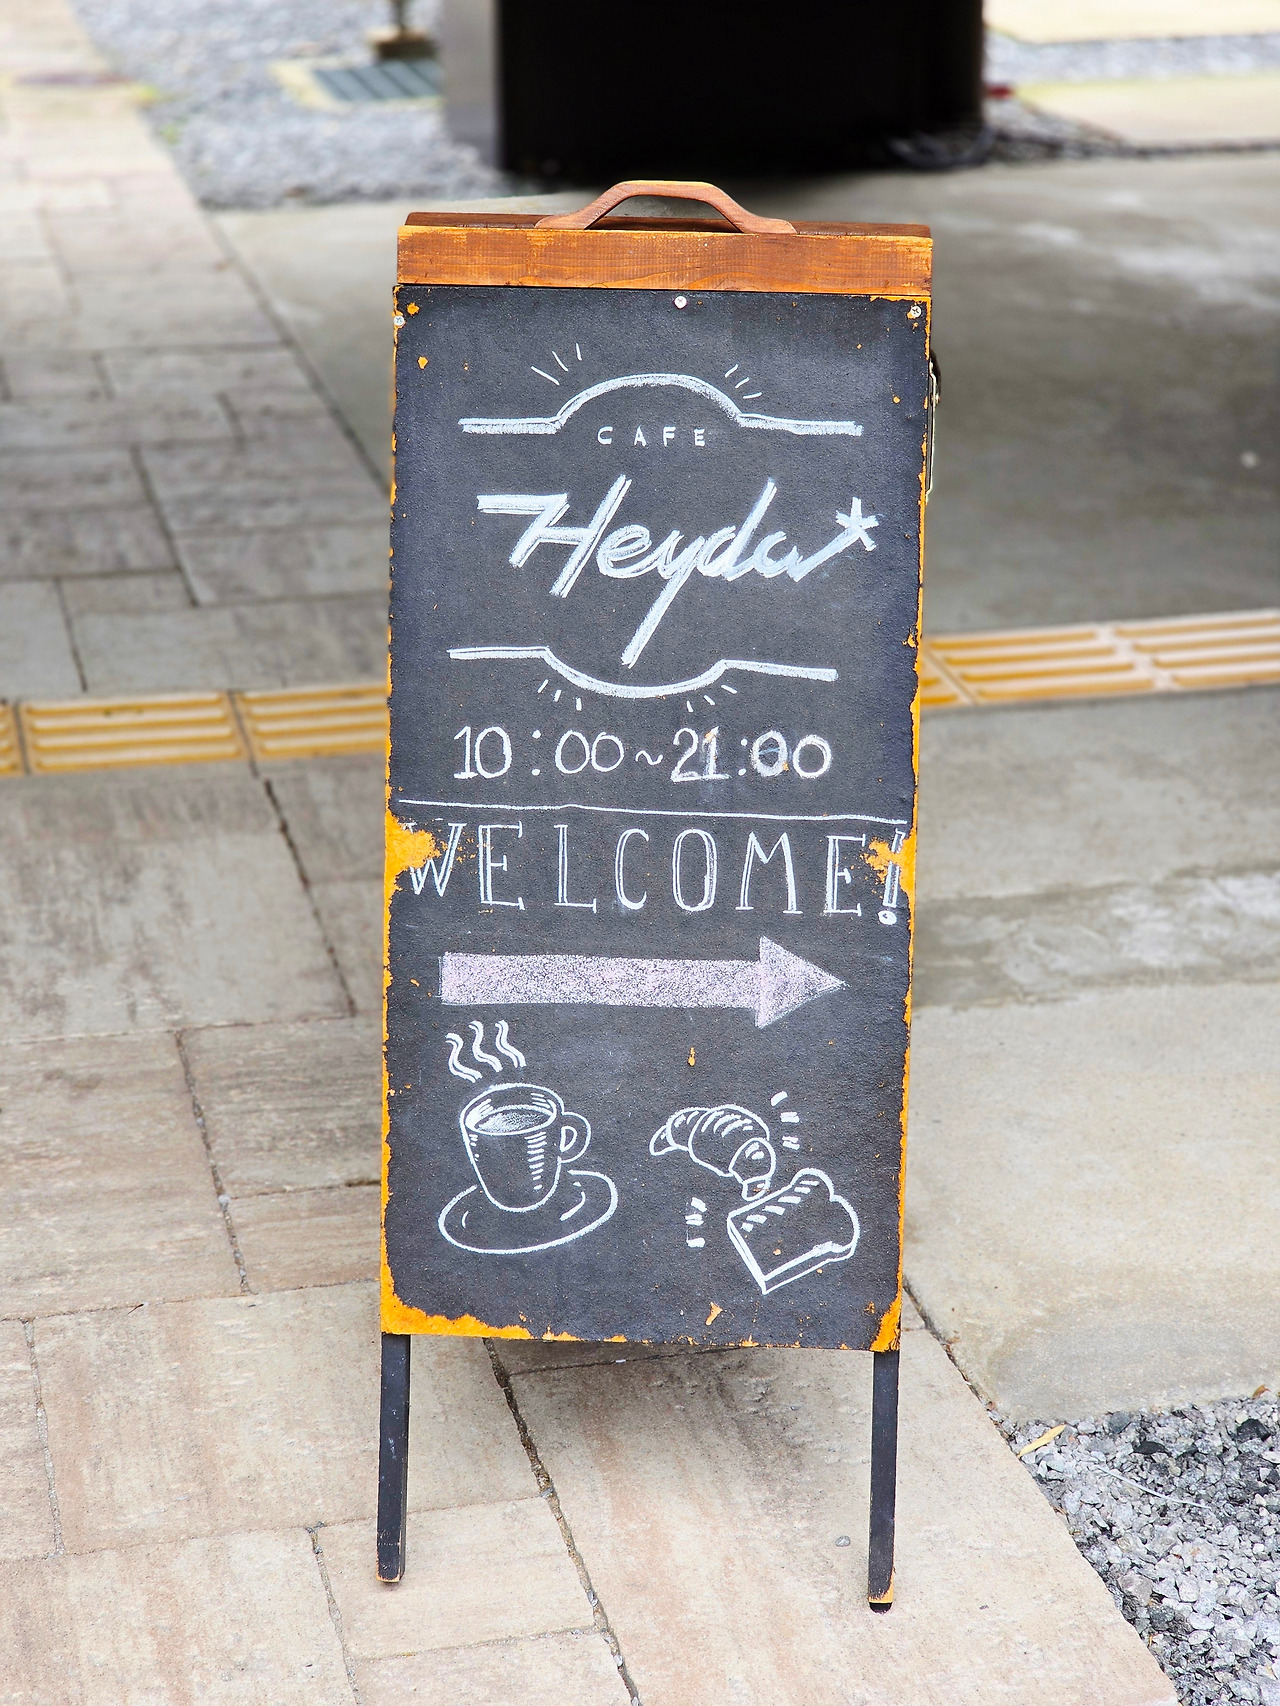 CAFE
Heyday*
10:00~21:00
WELCOME!